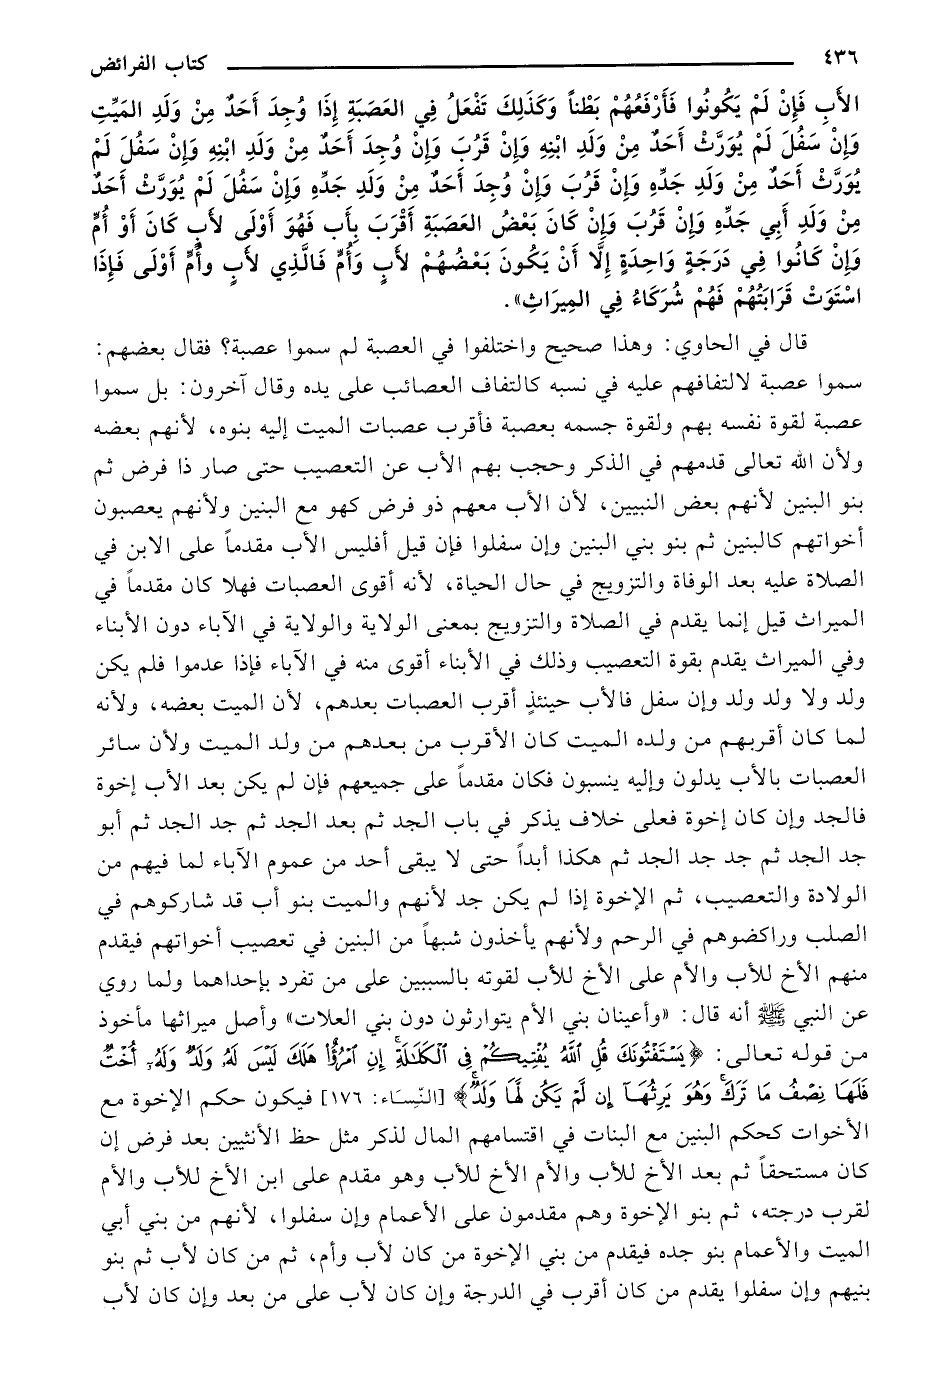 ٤٣٦ كتاب الفرائض
الأَبِ فَإِنْ لَمْ يَكُونُوا فَأَرْفَعُهُمْ بَطْناً وَكَذَلِكَ تَفْعَلُ فِي العَصَبَةِ إِذَا وُجِدَ أَحَدٌ مِنْ وَلَدِ المَيِّتِ
وَإِنْ سَفُلَ لَمْ يُوَرَّثْ أَحَدٌ مِنْ وَلَدِ ابْنِهِ وَإِنْ قَرُبَ وَإِنْ وُجِدَ أَحَدٌ مِنْ وَلَدِ ابْنِهِ وَإِنْ سَفُلَ لَمْ
يُوَرَّثْ أَحَدٌ مِنْ وَلَدِ جَدِّهِ وَإِنْ قَرُبَ وَإِنْ وُجِدَ أَحَدٌ مِنْ وَلَدِ جَدِّهِ وَإِنْ سَفُلَ لَمْ يُوَرَّثْ أَحَدٌ
مِنْ وَلَدِ أَبِي جَدِّهِ وَإِنْ قَرُبَ وَإِنْ كَانَ بَعْضُ العَصَبَةِ أَقْرَبَ بِأَب فَهُوَ أَوْلَى لأَبٍ كَانَ أَوْ أُمٍّ
وَإِنْ كَانُوا فِي دَرَجَةٍ وَاحِدَةٍ إِلَّا أَنْ يَكُونَ بَعْضُهُمْ لأَبٍ وَأُمٍّ فَالَّذِي لأَبٍ وأُمٍّ أَوْلَى فَإِذَا
اسْتَوَتْ قَرَابَتُهُمْ فَهُمْ شُرَكَاءُ فِي المِيرَاثِ».
قال في الحاوي: وهذا صحيح واختلفوا في العصبة لم سموا عصبة؟ فقال بعضهم:
سموا عصبة لالتفافهم عليه في نسبه كالتفاف العصائب على يده وقال آخرون: بل سموا
عصبة لقوة نفسه بهم ولقوة جسمه بعصبة فأقرب عصبات الميت إليه بنوه، لأنهم بعضه
ولأن الله تعالى قدمهم في الذكر وحجب بهم الأب عن التعصيب حتى صار ذا فرض ثم
بنو البنين لأنهم بعض النبيين، لأن الأب معهم ذو فرض كهو مع البنين ولأنهم يعصبون
أخواتهم كالبنين ثم بنو بني البنين وإن سفلوا فإن قيل أفليس الأب مقدماً على الابن في
الصلاة عليه بعد الوفاة والتزويج في حال الحياة، لأنه أقوى العصبات فهلا كان مقدماً في
الميراث قيل إنما يقدم في الصلاة والتزويج بمعنى الولاية والولاية في الآباء دون الأبناء
وفي الميراث يقدم بقوة التعصيب وذلك في الأبناء أقوى منه في الآباء فإذا عدموا فلم يكن
ولد ولا ولد ولد وإن سفل فالأب حينئذٍ أقرب العصبات بعدهم، لأن الميت بعضه، ولأنه
لما كان أقربهم من ولده الميت كان الأقرب من بعدهم من ولد الميت ولأن سائر
العصبات بالأب يدلون وإليه ينسبون فكان مقدماً على جميعهم فإن لم يكن بعد الأب إخوة
فالجد وإن كان إخوة فعلى خلاف يذكر في باب الجد ثم بعد الجد ثم جد الجد ثم أبو
جد الجد ثم جد جد الجد ثم هكذا أبداً حتى لا يبقى أحد من عموم الآباء لما فيهم من
الولادة والتعصيب، ثم الإخوة إذا لم يكن جد لأنهم والميت بنو أب قد شاركوهم في
الصلب وراكضوهم في الرحم ولأنهم يأخذون شبهاً من البنين في تعصيب أخواتهم فيقدم
منهم الأخ للأب والأم على الأخ للأب لقوته بالسببين على من تفرد بإحداهما ولما روي
عن النبي ﷺ أنه قال: «وأعينان بني الأم يتوارثون دون بني العلات» وأصل ميراثها مأخوذ
من قوله تعالى: ﴿يَسْتَفْتُونَكَ قُلِ اللَّهُ يُفْتِيكُمْ فِي الْكَلَالَةِ إِنِ امْرُؤٌا هَلَكَ لَيْسَ لَهُ وَلَدٌ وَلَهُ أُخْتٌ
فَلَهَا نِصْفُ مَا تَرَكَ وَهُوَ يَرِثُهَا إِن لَّمْ يَكُن لَّهَا وَلَدٌ﴾ [النِّسَاء: ١٧٦] فيكون حكم الإخوة مع
الأخوات كحكم البنين مع البنات في اقتسامهم المال لذكر مثل حظ الأنثيين بعد فرض إن
كان مستحقاً ثم بعد الأخ للأب والأم الأخ للأب وهو مقدم على ابن الأخ للأب والأم
لقرب درجته، ثم بنو الإخوة وهم مقدمون على الأعمام وإن سفلوا، لأنهم من بني أبي
الميت والأعمام بنو جده فيقدم من بني الإخوة من كان لأب وأم، ثم من كان لأب ثم بنو
بنيهم وإن سفلوا يقدم من كان أقرب في الدرجة وإن كان لأب على من بعد وإن كان لأب